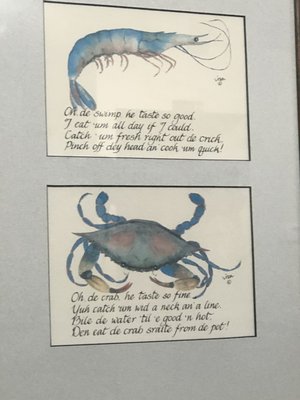 Oh, de swimp, he taste so good.
I eat 'um all day if I could.
Catch 'um fresh right out de crick,
Pinch off dey head an' cook 'um quick!
Oh, de crab, he taste so fine
Yuh catch 'um wid a neck an' a line.
Bile de water 'til 'e good 'n hot.
Den eat de crab sraite from de pot!